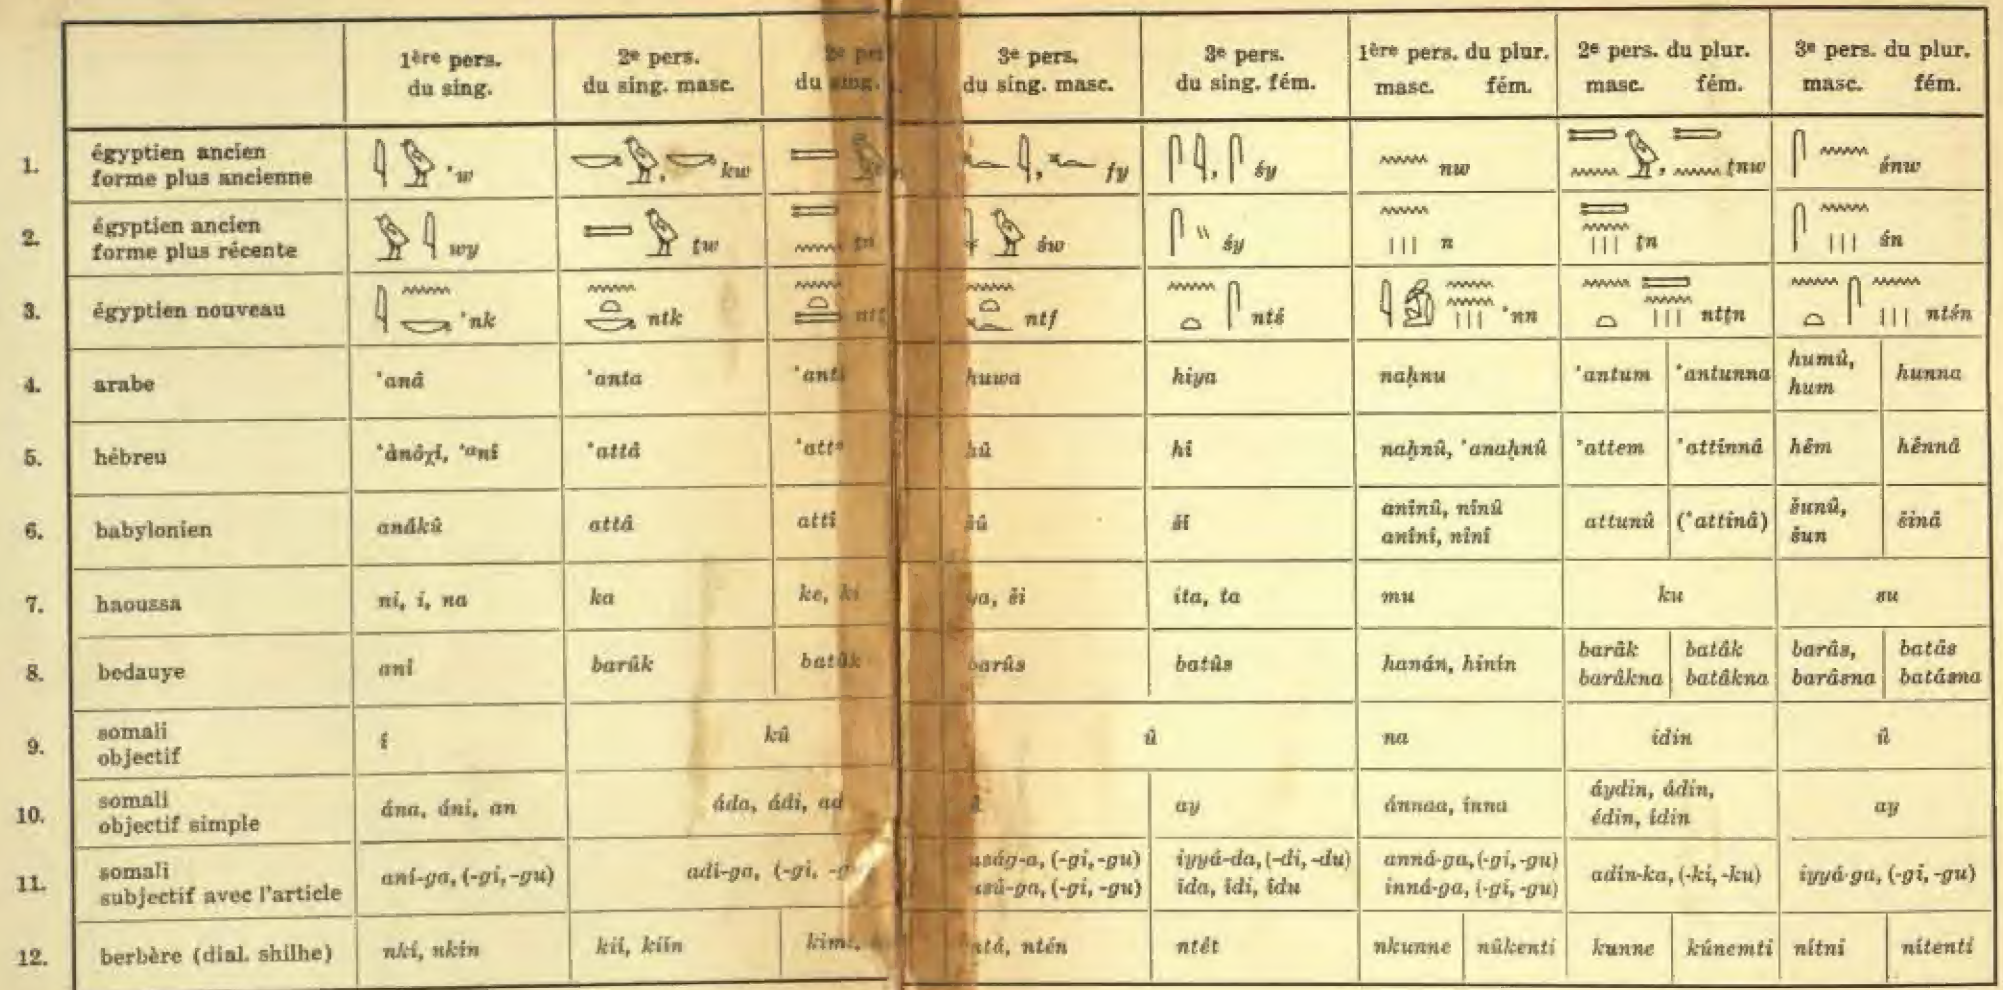 1ère pers. du sing. 2e pers. du sing. masc. 2e du sing. 3e pers. du sing. masc. 3e pers. du sing. fém. 1ère pers. du plur. masc. fém. 2e pers. du plur. masc. fém. 3e pers. du plur. masc. fém.
1. égyptien ancien forme plus ancienne 'w kw fy śy nw ṯnw śnw
2. égyptien ancien forme plus récente wy ṯw ṯn św śy n ṯn śn
3. égyptien nouveau 'nk ntk ntf ntś 'nn ntṯn ntśn
4. arabe 'anâ 'anta 'anti huwa hiya naḥnu 'antum 'antunna humû, hum hunna
5. hébreu 'ànôχí, 'ᵃní 'attâ hû hî naḥnû, 'anaḥnû 'attem 'attínnâ hêm hênnâ
6. babylonien anâkû attâ attî šû šî anînû, nînû anîní, nîní attunû ('attînâ) šunû, šun šinâ
7. haoussa ni, i, na ka ke, ki ya, ši ita, ta mu ku su
8. bedauye aní barûk batûk barûs batûs hanán, hinín barâk barâkna batâk batâkna barâs, barâsna batâs batásna
9. somali objectif í kû û na idin û
10. somali objectif simple ána, áni, an áda, ádi, ad ay ánnaa, ínna áydin, ádin, édin, ídin ay
11. somali subjectif avec l'article aní-ga, (-gi, -gu) adi-ga, (-gi, (-gi, -gu) (-gi, -gu) iyyá-da, (-di, -du) îda, îdi, îdu anná-ga, (-gi, -gu) inná-ga, (-gi, -gu) adin-ka, (-ki, -ku) iyyá-ga, (-gi, -gu)
12. berbère (dial. shilhe) nkí, nkín kií, kiín ntén ntét nkunne nûkenti kunne kúnemti nítni nítenti